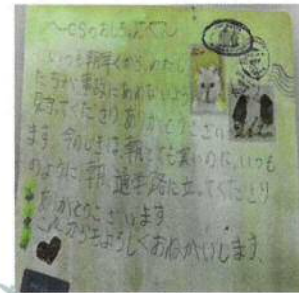 いつも朝早くから、わたし
たちが事故にあわないよう
見守ってくださりありがとうござい
ます。今の時きは、朝とても寒いのに、いつも
のように朝、通学路に立ってくださり
ありがとうございます
これからもよろしくおねがいします。